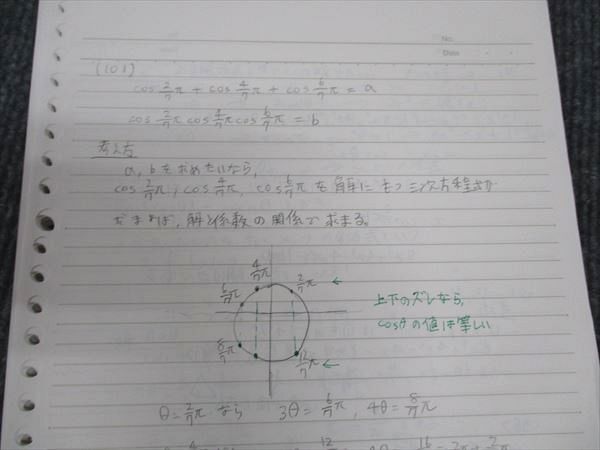 No.
Date
(101)
cos 2/7 π + cos 4/7 π + cos 6/7 π = a
cos 2/7 π cos 4/7 π cos 6/7 π = b
考え方
a, b を求めたいなら,
cos 2/7 π, cos 4/7 π, cos 6/7 π を解にもつ三次方程式が
だせれば, 解と係数の関係で求まる。
4/7 π
6/7 π
2/7 π
上下のズレなら,
cosθ の値は等しい
8/7 π
12/7 π
θ = 2/7 π なら 3θ = 6/7 π, 4θ = 8/7 π